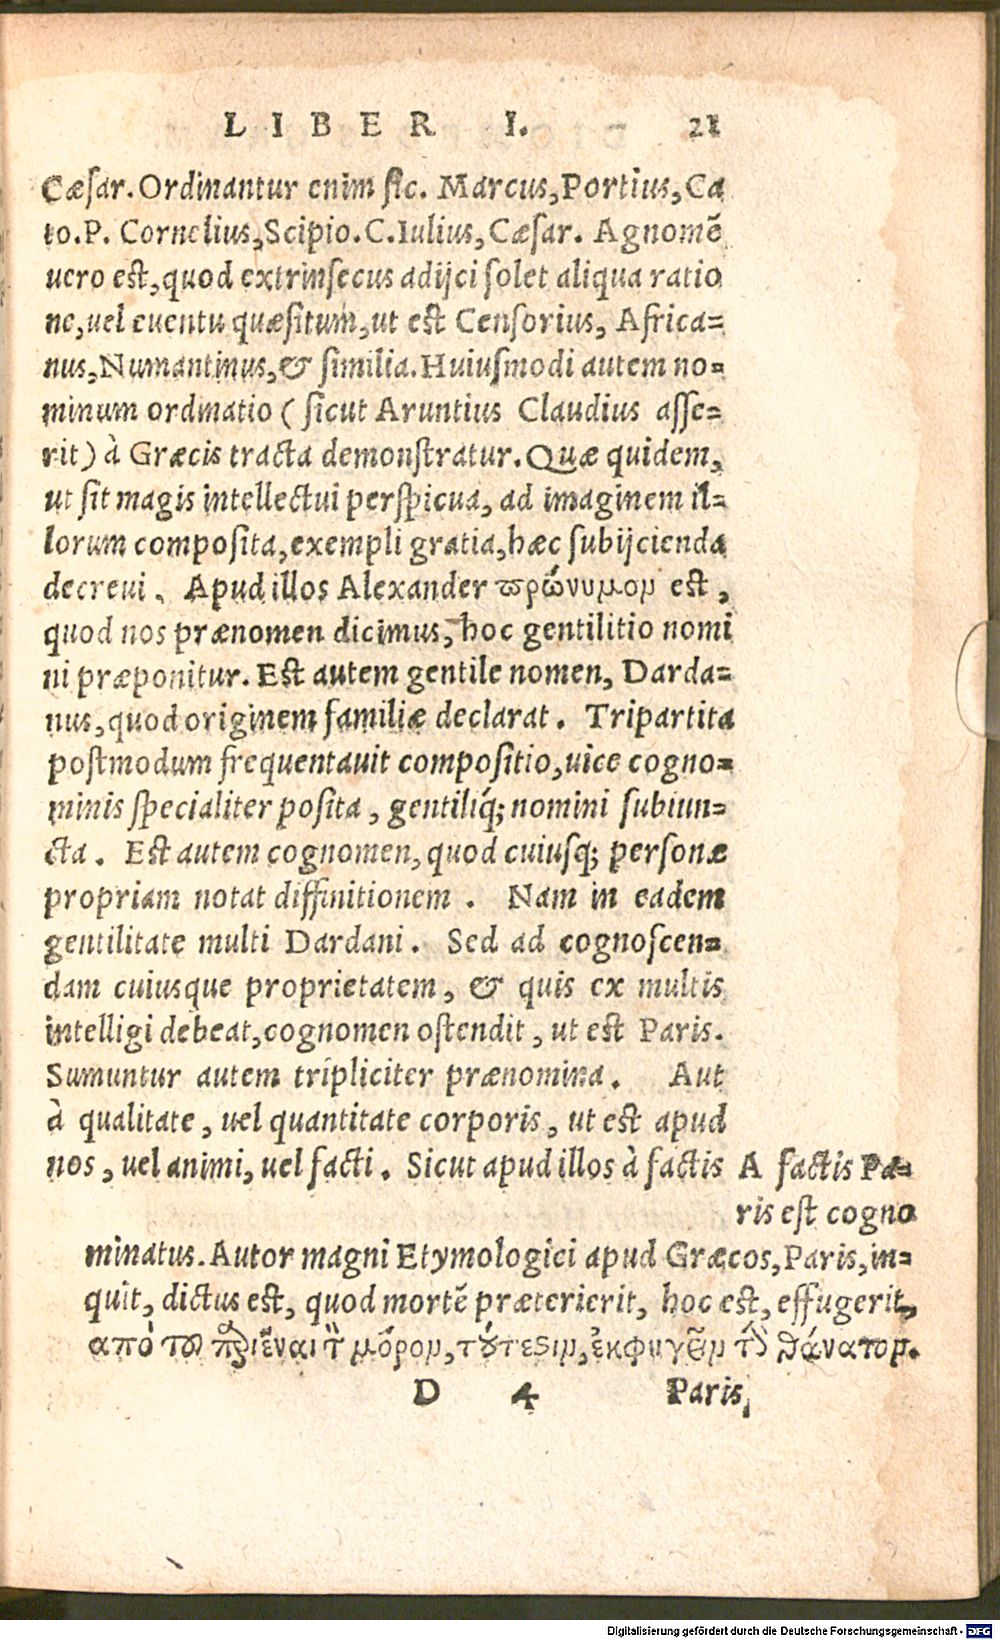 LIBER I. 21
Cæsar. Ordinantur enim sic. Marcus, Portius, Ca
to. P. Cornelius, Scipio. C. Iulius, Cæsar. Agnomẽ
uero est, quod extrinsecus adijci solet aliqua ratio
ne, uel euentu quæsitum, ut est Censorius, Africa=
nus, Numantinus, & similia. Huiusmodi autem no=
minum ordinatio ( sicut Aruntius Claudius asse=
rit ) à Græcis tracta demonstratur. Quæ quidem,
ut sit magis intellectui perspicua, ad imaginem il=
lorum composita, exempli gratia, hæc subijcienda
decreui. Apud illos Alexander πρώνυμον est,
quod nos prænomen dicimus, hoc gentilitio nomi
ni præponitur. Est autem gentile nomen, Darda=
nus, quod originem familiæ declarat. Tripartita
postmodum frequentauit compositio, uice cogno=
minis specialiter posita, gentiliq́; nomini subiun=
cta. Est autem cognomen, quod cuiusq; personæ
propriam notat diffinitionem. Nam in eadem
gentilitate multi Dardani. Sed ad cognoscen=
dam cuiusque proprietatem, & quis ex multis
intelligi debeat, cognomen ostendit, ut est Paris.
Sumuntur autem tripliciter prænomina. Aut
à qualitate, uel quantitate corporis, ut est apud
nos, uel animi, uel facti. Sicut apud illos à factis
A factis Pa=
ris est cogno
minatus. Autor magni Etymologici apud Græcos, Paris, in=
quit, dictus est, quod mortẽ præterierit, hoc est, effugerit,
ἀπὸ τοῦ παριέναι τὸν μόρον, τούτεστιν, ἐκφυγεῖν τὸν θάνατον.
D 4 Paris,
Digitalisierung gefördert durch die Deutsche Forschungsgemeinschaft - DFG